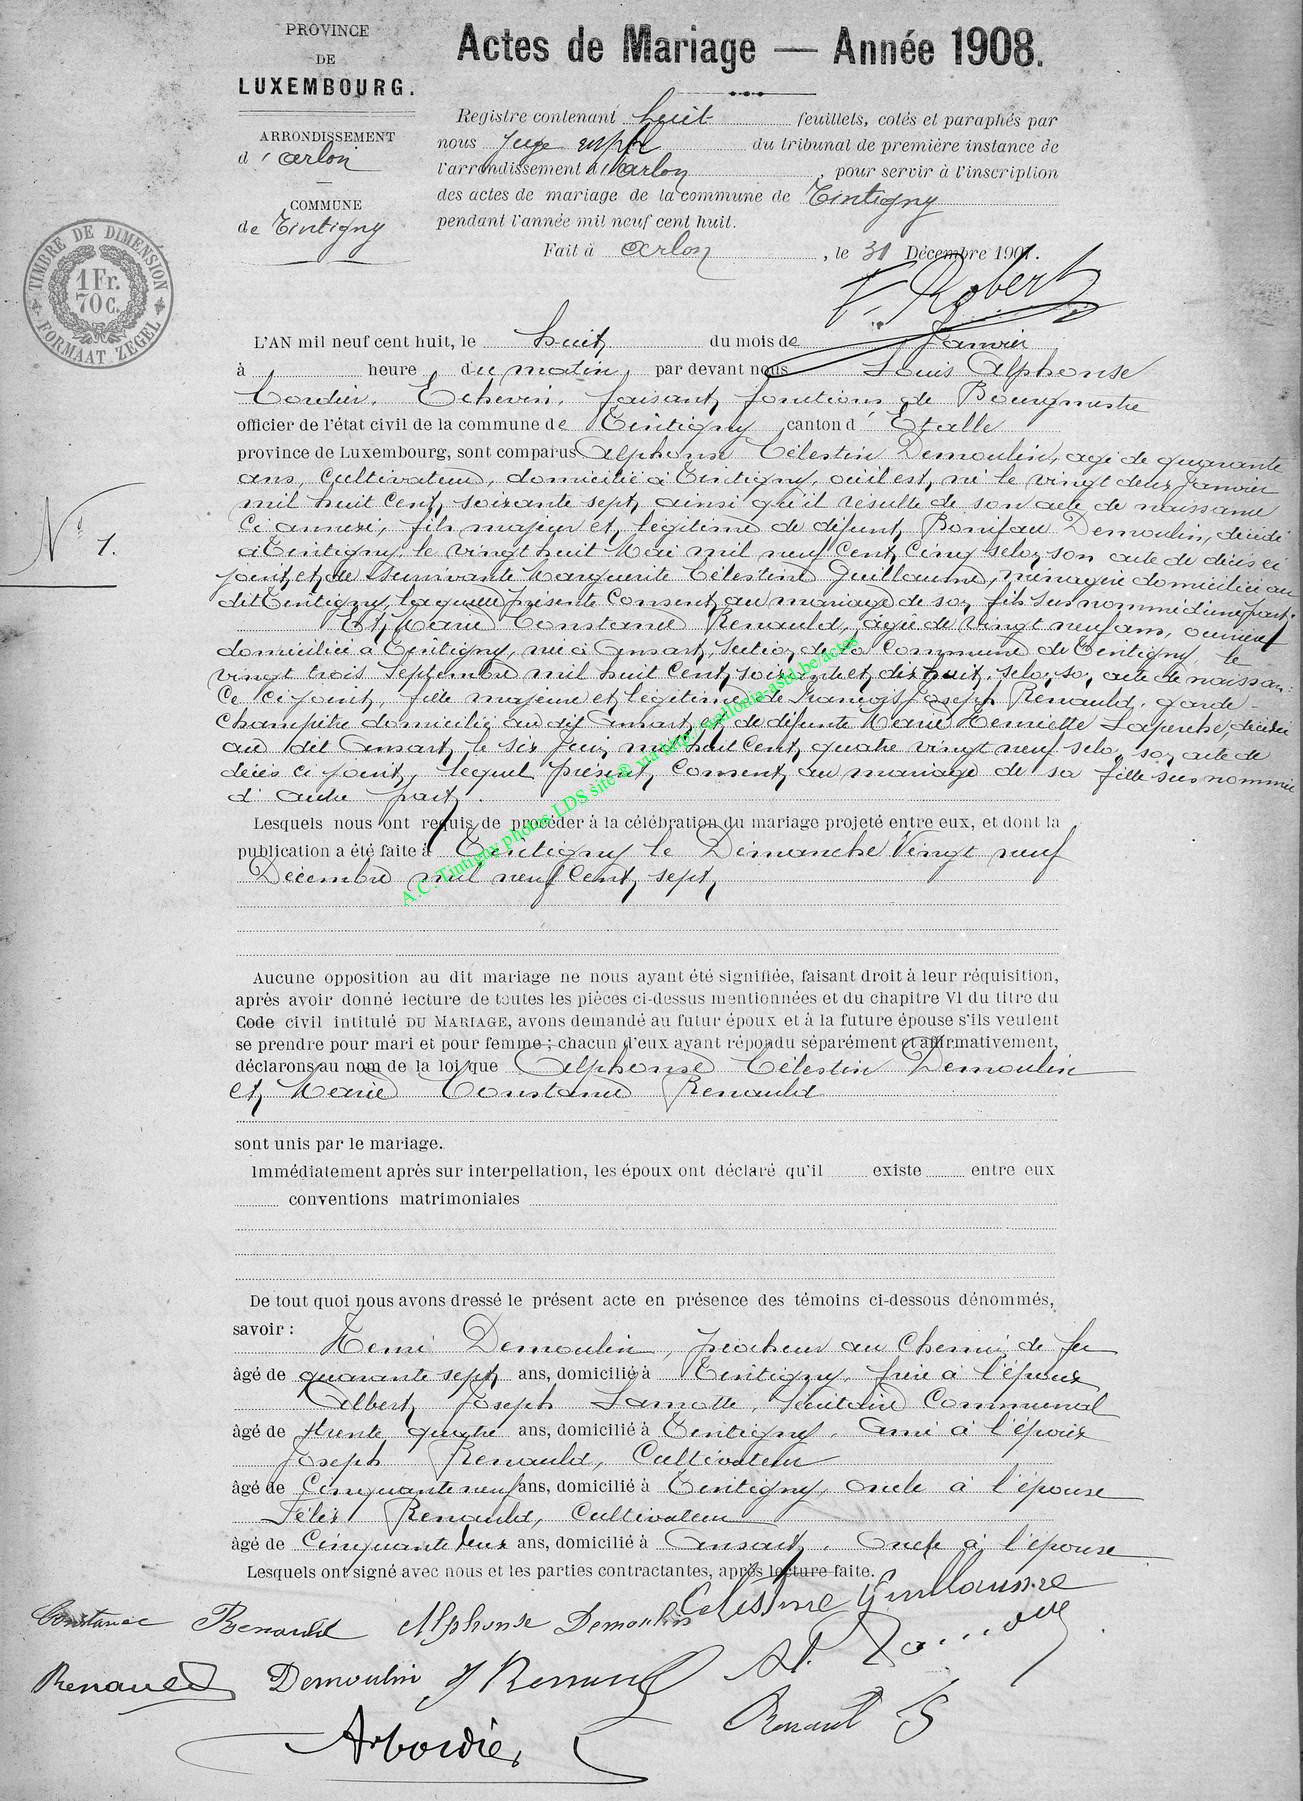 PROVINCE
DE
LUXEMBOURG.
ARRONDISSEMENT
d'Arlon
COMMUNE
de Tintigny
TIMBRE DE DIMENSION
1 Fr.
70 c.
FORMAAT ZEGEL
Actes de Mariage — Année 1908.
Registre contenant huit feuillets, cotés et paraphés par
nous Juge du tribunal de première instance de
l'arrondissement d'Arlon, pour servir à l'inscription
des actes de mariage de la commune de Tintigny
pendant l'année mil neuf cent huit.
Fait à Arlon, le 31 Décembre 1907.
V. Robert
L'AN mil neuf cent huit, le huit du mois de Janvier
à heure du matin, par devant nous Louis Alphonse
Cordier, Echevin, faisant fonctions de Bourgmestre
officier de l'état civil de la commune de Tintigny, canton d'Etalle
province de Luxembourg, sont comparus Alphonse Célestin Demoulin, âgé de quarante
ans, cultivateur, domicilié à Tintigny, où il est né le vingt deux Janvier
mil huit cent soixante sept, ainsi qu'il résulte de son acte de naissance
N° 1.
ci annexé, fils majeur et légitime de défunt Boniface Demoulin, décédé
à Tintigny le vingt huit Mai mil neuf cent cinq selon son acte de décès ci
joint, et de survivante Marguerite Célestine Guillaume, ménagère domiciliée au
dit Tintigny, laquelle présente consent au mariage de son fils sus nommé d'une part;
Et Marie Constance Renauld, âgée de vingt neuf ans, ouvrière
domiciliée à Tintigny, née à Ansart, section de la commune de Tintigny, le
vingt trois Septembre mil huit cent soixante et dix huit, selon son acte de naissan-
ce ci joint, fille majeure et légitime de François Joseph Renauld, garde-
champêtre domicilié au dit Ansart, et de défunte Marie Henriette Laperche, décédée
au dit Ansart le six Juin mil huit cent quatre vingt neuf selon son acte de
décès ci joint, lequel présent consent au mariage de sa fille sus nommée
d'autre part.
A.C. Tintigny photos LDS site @ via http://wallonia-asbl.be/actes
Lesquels nous ont requis de procéder à la célébration du mariage projeté entre eux, et dont la
publication a été faite à Tintigny le Dimanche Vingt neuf
Décembre mil neuf cent sept,
Aucune opposition au dit mariage ne nous ayant été signifiée, faisant droit à leur réquisition,
après avoir donné lecture de toutes les pièces ci-dessus mentionnées et du chapitre VI du titre du
Code civil intitulé DU MARIAGE, avons demandé au futur époux et à la future épouse s'ils veulent
se prendre pour mari et pour femme; chacun d'eux ayant répondu séparément et affirmativement,
déclarons au nom de la loi que Alphonse Célestin Demoulin
et Marie Constance Renauld
sont unis par le mariage.
Immédiatement après sur interpellation, les époux ont déclaré qu'il existe entre eux
conventions matrimoniales
De tout quoi nous avons dressé le présent acte en présence des témoins ci-dessous dénommés,
savoir:
Henri Demoulin, piocheur au chemin de fer
âgé de quarante sept ans, domicilié à Tintigny, frère à l'époux,
Albert Joseph Lamotte, secrétaire communal
âgé de trente quatre ans, domicilié à Tintigny, ami à l'époux
Joseph Renauld, Cultivateur
âgé de Cinquante neuf ans, domicilié à Tintigny, oncle à l'épouse
Félix Renauld, cultivateur
âgé de Cinquante deux ans, domicilié à Ansart, oncle à l'épouse
Lesquels ont signé avec nous et les parties contractantes, après lecture faite.
Constance Renauld Alphonse Demoulin Celestine Guillaume
Renauld Demoulin J Renauld
Renault